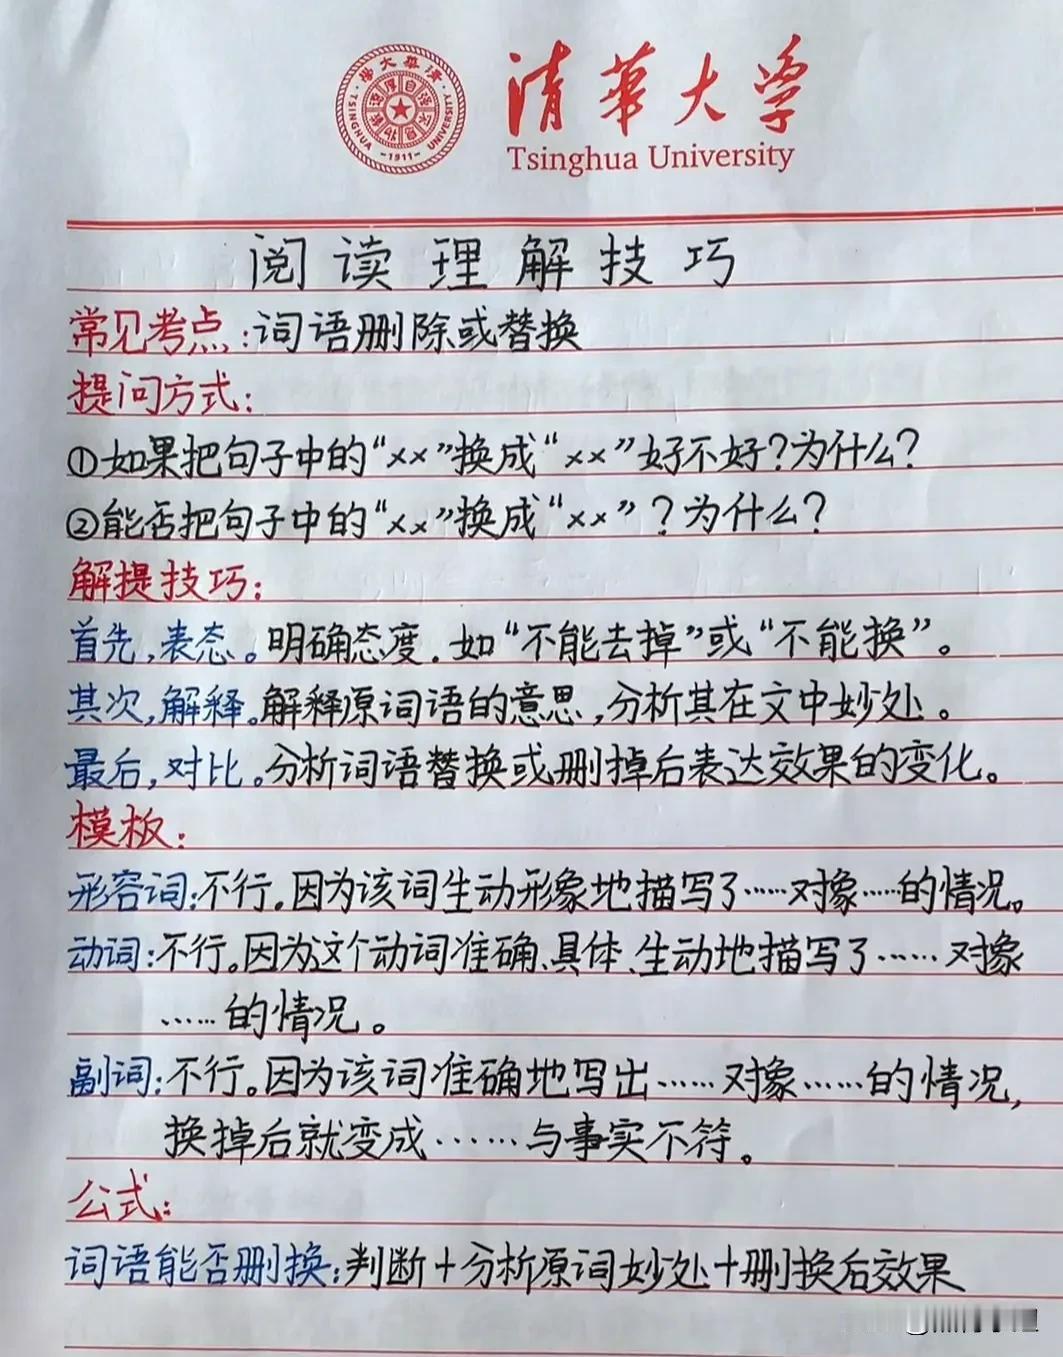 清华大学
Tsinghua University
阅读理解技巧
常见考点:词语删除或替换
提问方式:
①如果把句子中的“××”换成“××”好不好?为什么?
②能否把句子中的“××”换成“××”?为什么?
解提技巧:
首先,表态。明确态度.如“不能去掉”或“不能换”。
其次,解释。解释原词语的意思,分析其在文中妙处。
最后,对比。分析词语替换或删掉后表达效果的变化。
模板:
形容词:不行.因为该词生动形象地描写了……对象……的情况。
动词:不行。因为这个动词准确、具体、生动地描写了……对象
……的情况。
副词:不行。因为该词准确地写出……对象……的情况,
换掉后就变成……与事实不符。
公式:
词语能否删换:判断+分析原词妙处+删换后效果